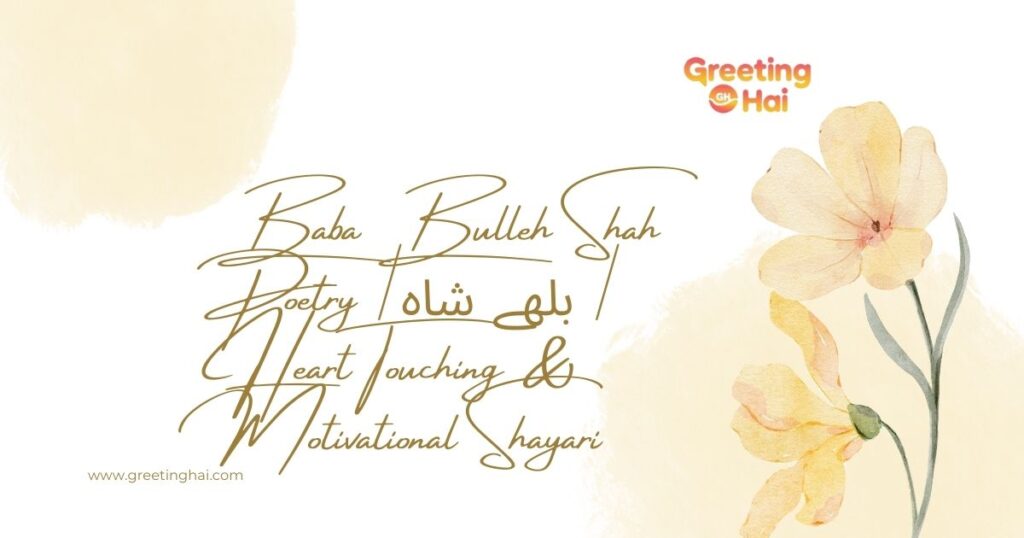 Greeting
GH Hai
Baba Bulleh Shah
Poetry | بلھے شاہ |
Heart Touching &
Motivational Shayari
www.greetinghai.com